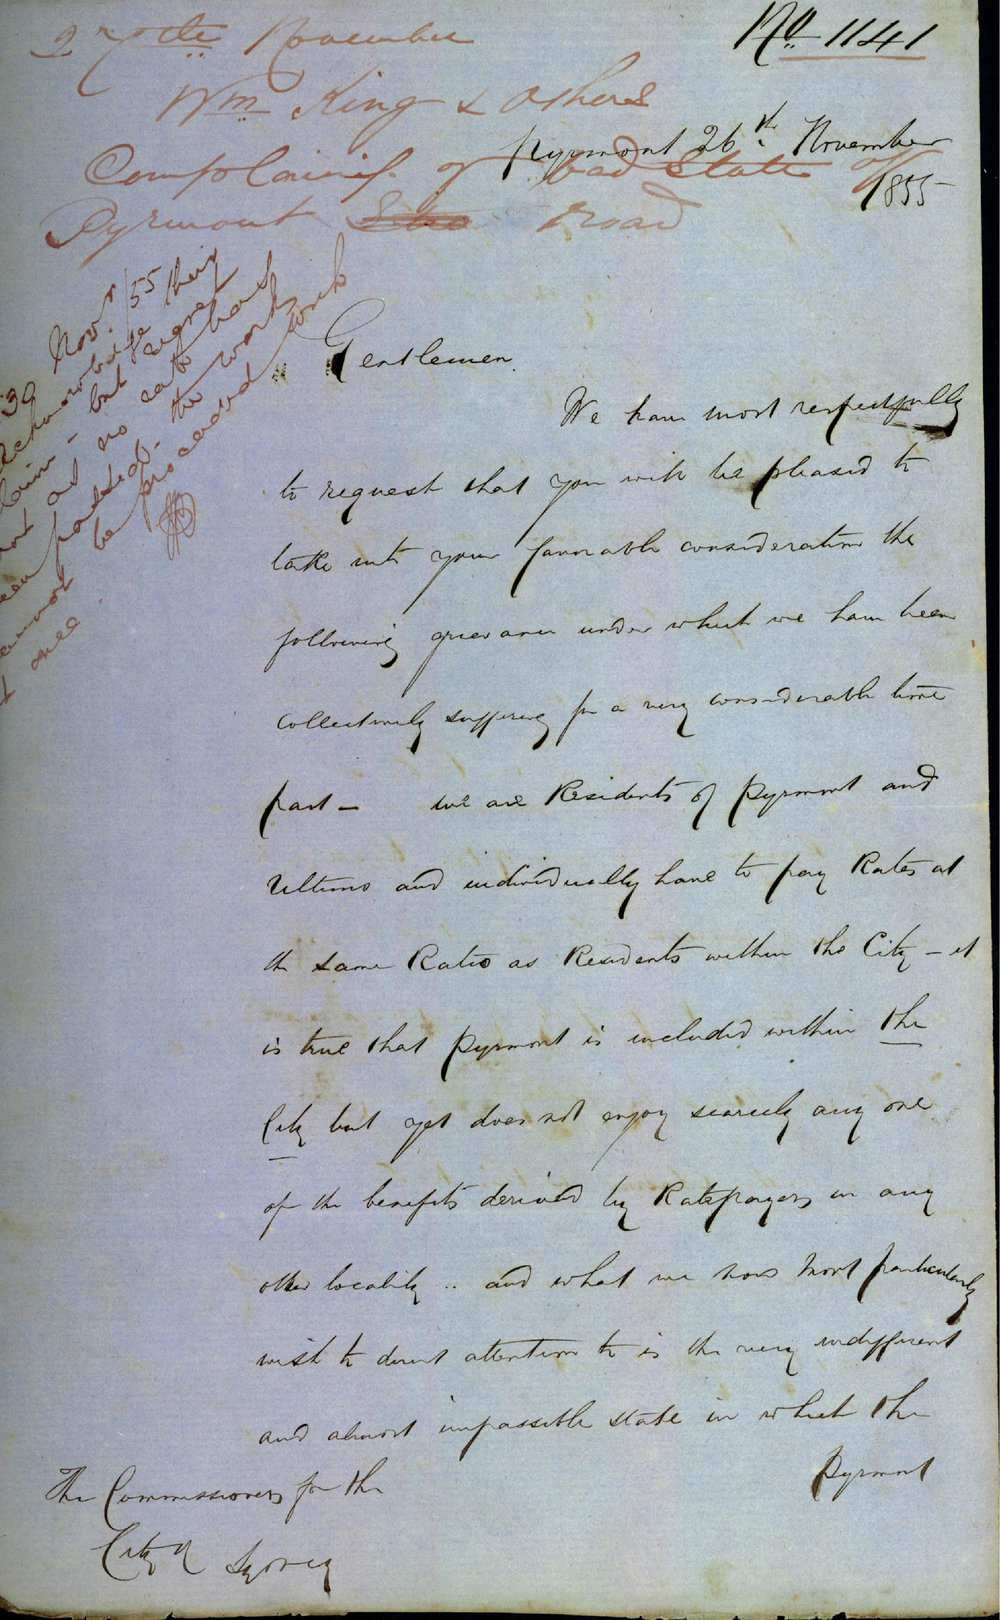 27th November
No. 1141
Wm. King & Others
Complaining of bad State of
Pyrmont road
Pyrmont 26th. November
1855
30 Novr./55
but regret
no rate has
the work
be proceeded with
Gentlemen.
We have most respectfully
to request that you will be pleased to
take into your favorable consideration the
following grievance under which we have been
collectively suffering for a very considerable time
past — we are Residents of Pyrmont and
Ultimo and individually have to pay Rates at
the same Ratio as Residents within the City — it
is true that Pyrmont is included within the
City but yet does not enjoy scarcely any one
of the benefits derived by Ratepayers in any
other locality .. and what we now most particularly
wish to direct attention to is the very indifferent
and almost impassible state in which the
Pyrmont
The Commissioners for the
City of Sydney